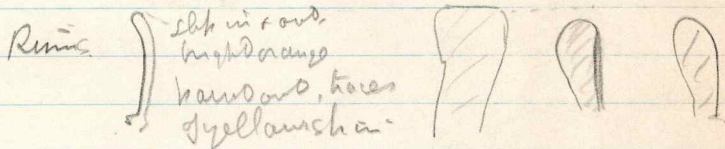 Rims. slip in & out,
bright orange
band out, traces
of yellowish in